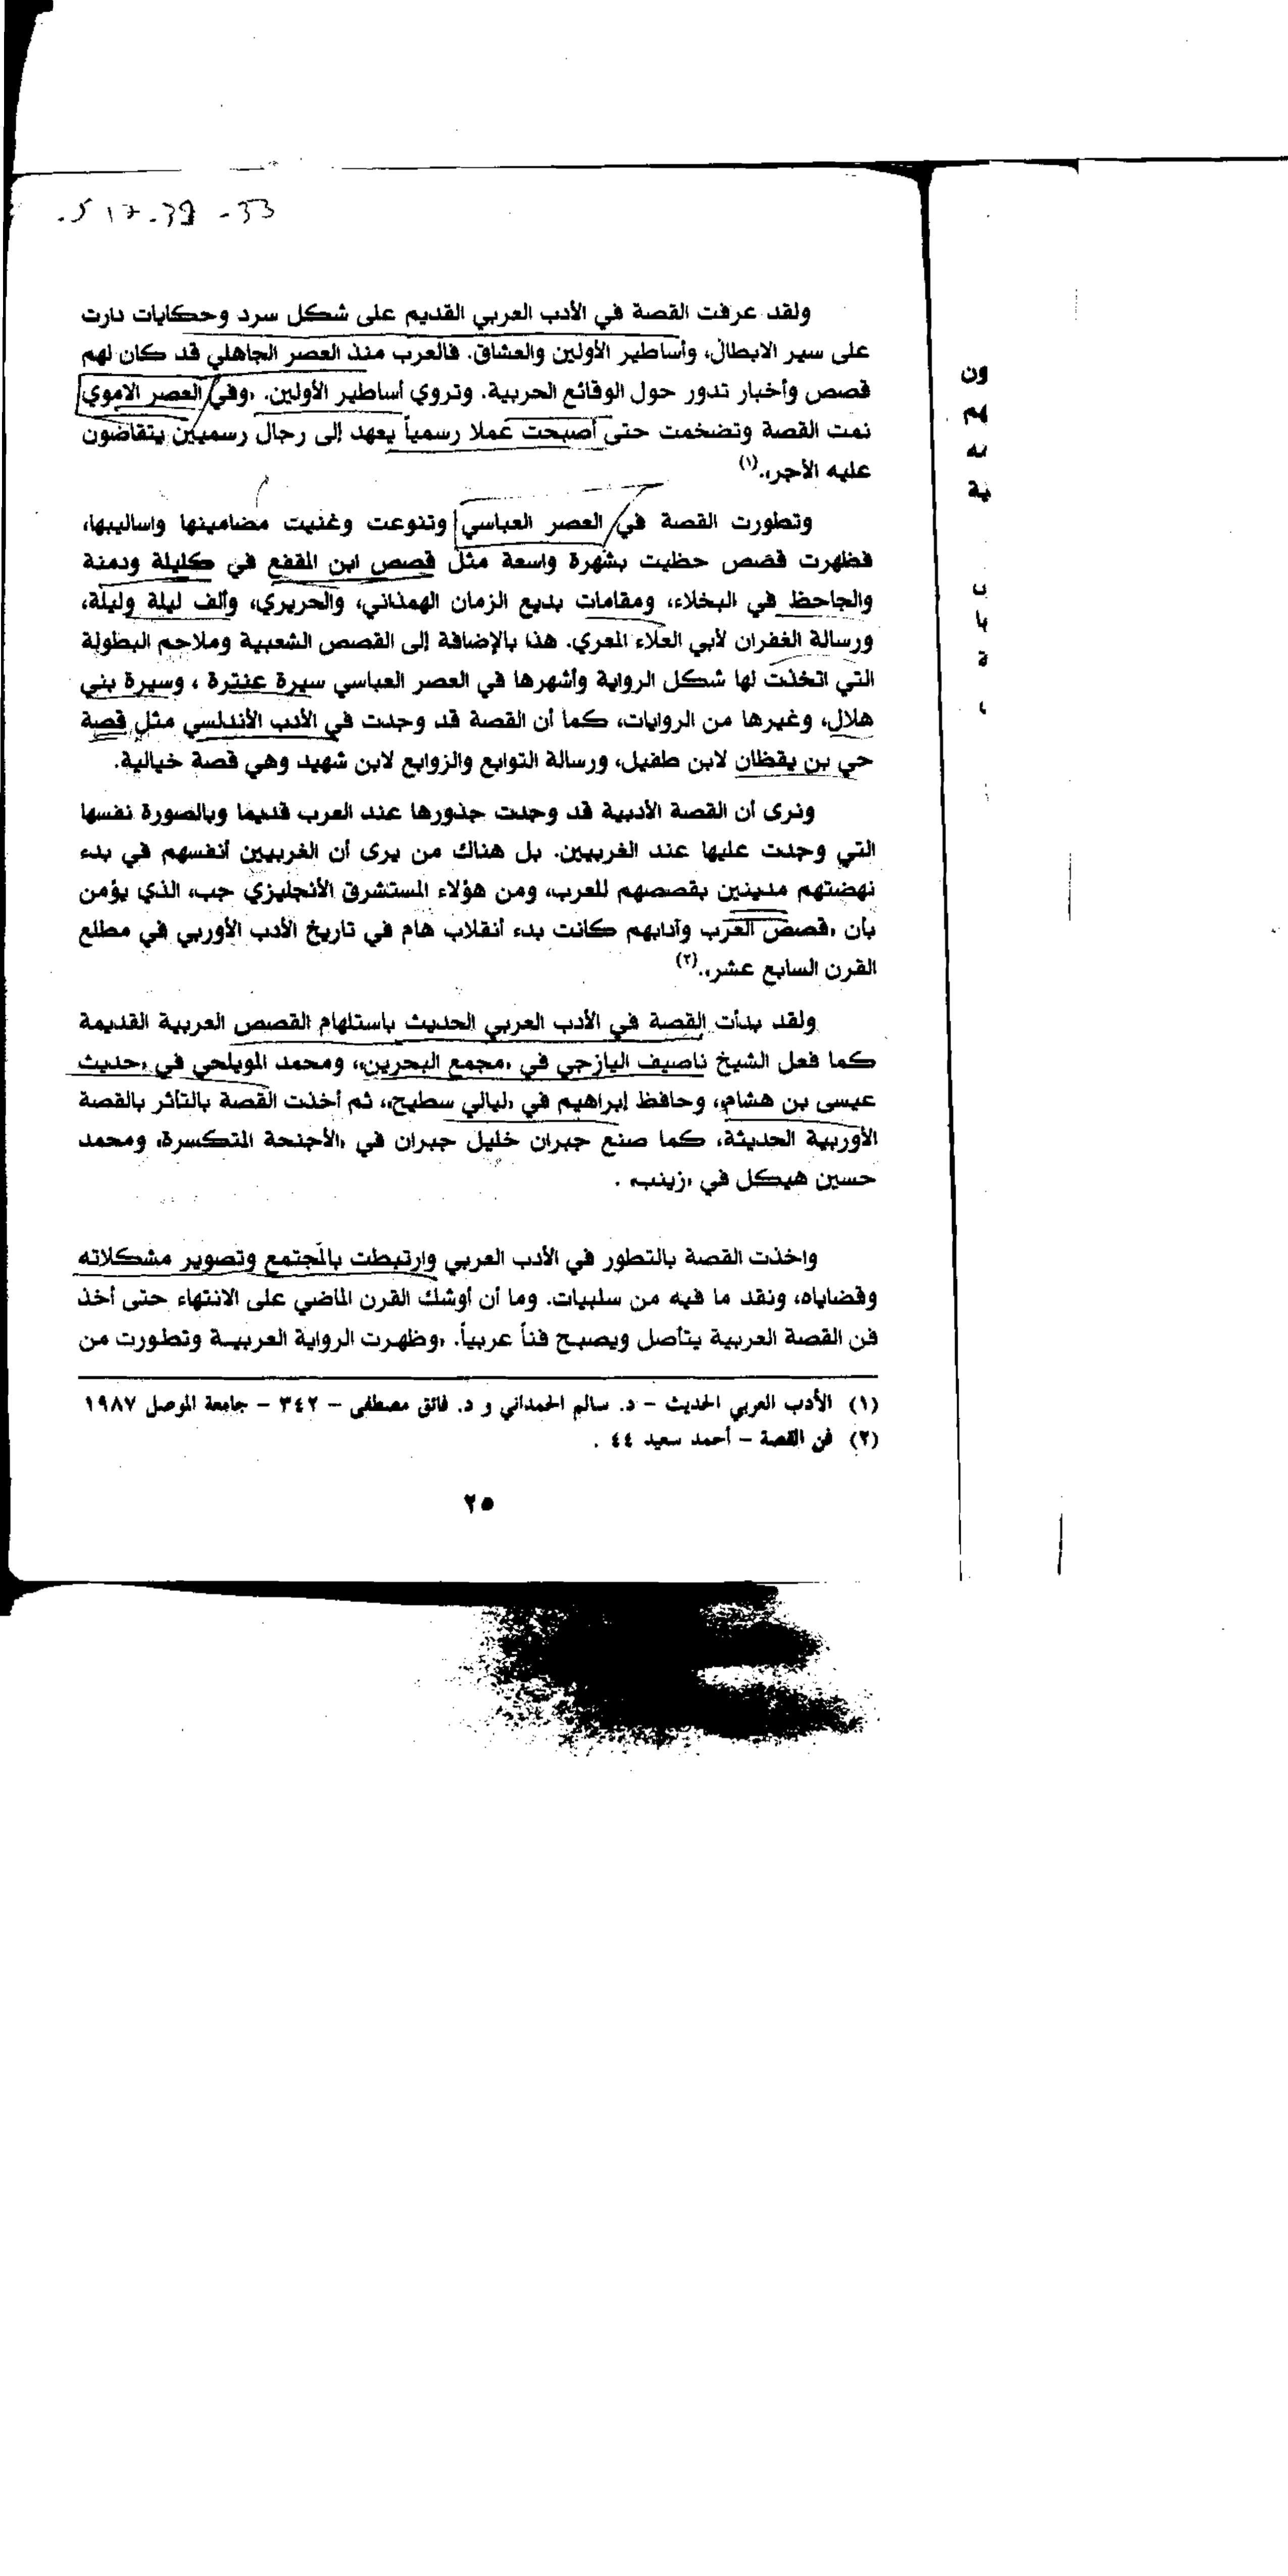 ولقد عرفت القصة في الأدب العربي القديم على شكل سرد وحكايات دارت
على سير الابطال، وأساطير الأولين والعشاق. فالعرب منذ العصر الجاهلي قد كان لهم
قصص وأخبار تدور حول الوقائع الحربية. وتروي أساطير الأولين. «وفي العصر الاموي
نمت القصة وتضخمت حتى أصبحت عملا رسمياً يعهد إلى رجال رسميين يتقاضون
عليه الأجر».(١)
وتطورت القصة في العصر العباسي وتنوعت وغنيت مضامينها واساليبها،
فظهرت قصص حظيت بشهرة واسعة مثل قصص ابن المقفع في كليلة ودمنة
والجاحظ في البخلاء، ومقامات بديع الزمان الهمذاني، والحريري، وألف ليلة وليلة،
ورسالة الغفران لأبي العلاء المعري. هذا بالإضافة إلى القصص الشعبية وملاحم البطولة
التي اتخذت لها شكل الرواية وأشهرها في العصر العباسي سيرة عنترة ، وسيرة بني
هلال، وغيرها من الروايات، كما أن القصة قد وجدت في الأدب الأندلسي مثل قصة
حي بن يقظان لابن طفيل، ورسالة التوابع والزوابع لابن شهيد وهي قصة خيالية.
ونرى أن القصة الأدبية قد وجدت جذورها عند العرب قديما وبالصورة نفسها
التي وجدت عليها عند الغربيين. بل هناك من يرى أن الغربيين أنفسهم في بدء
نهضتهم مدينين بقصصهم للعرب، ومن هؤلاء المستشرق الأنجليزي جب، الذي يؤمن
بأن «قصص العرب وآدابهم كانت بدء أنقلاب هام في تاريخ الأدب الأوربي في مطلع
القرن السابع عشر».(٢)
ولقد بدأت القصة في الأدب العربي الحديث باستلهام القصص العربية القديمة
كما فعل الشيخ ناصيف اليازجي في «مجمع البحرين»، ومحمد المويلحي في «حديث
عيسى بن هشام»، وحافظ إبراهيم في «ليالي سطيح»، ثم أخذت القصة بالتأثر بالقصة
الأوربية الحديثة، كما صنع جبران خليل جبران في «الأجنحة المتكسرة» ومحمد
حسين هيكل في «زينب» .
واخذت القصة بالتطور في الأدب العربي وارتبطت بالمجتمع وتصوير مشكلاته
وقضاياه، ونقد ما فيه من سلبيات. وما أن أوشك القرن الماضي على الانتهاء حتى أخذ
فن القصة العربية يتأصل ويصبح فناً عربياً. «وظهرت الرواية العربية وتطورت من
(١) الأدب العربي الحديث – د. سالم الحمداني و د. فائق مصطفى – ٣٤٢ – جامعة الموصل ١٩٨٧
(٢) فن القصة – أحمد سعيد ٤٤ .
٢٥